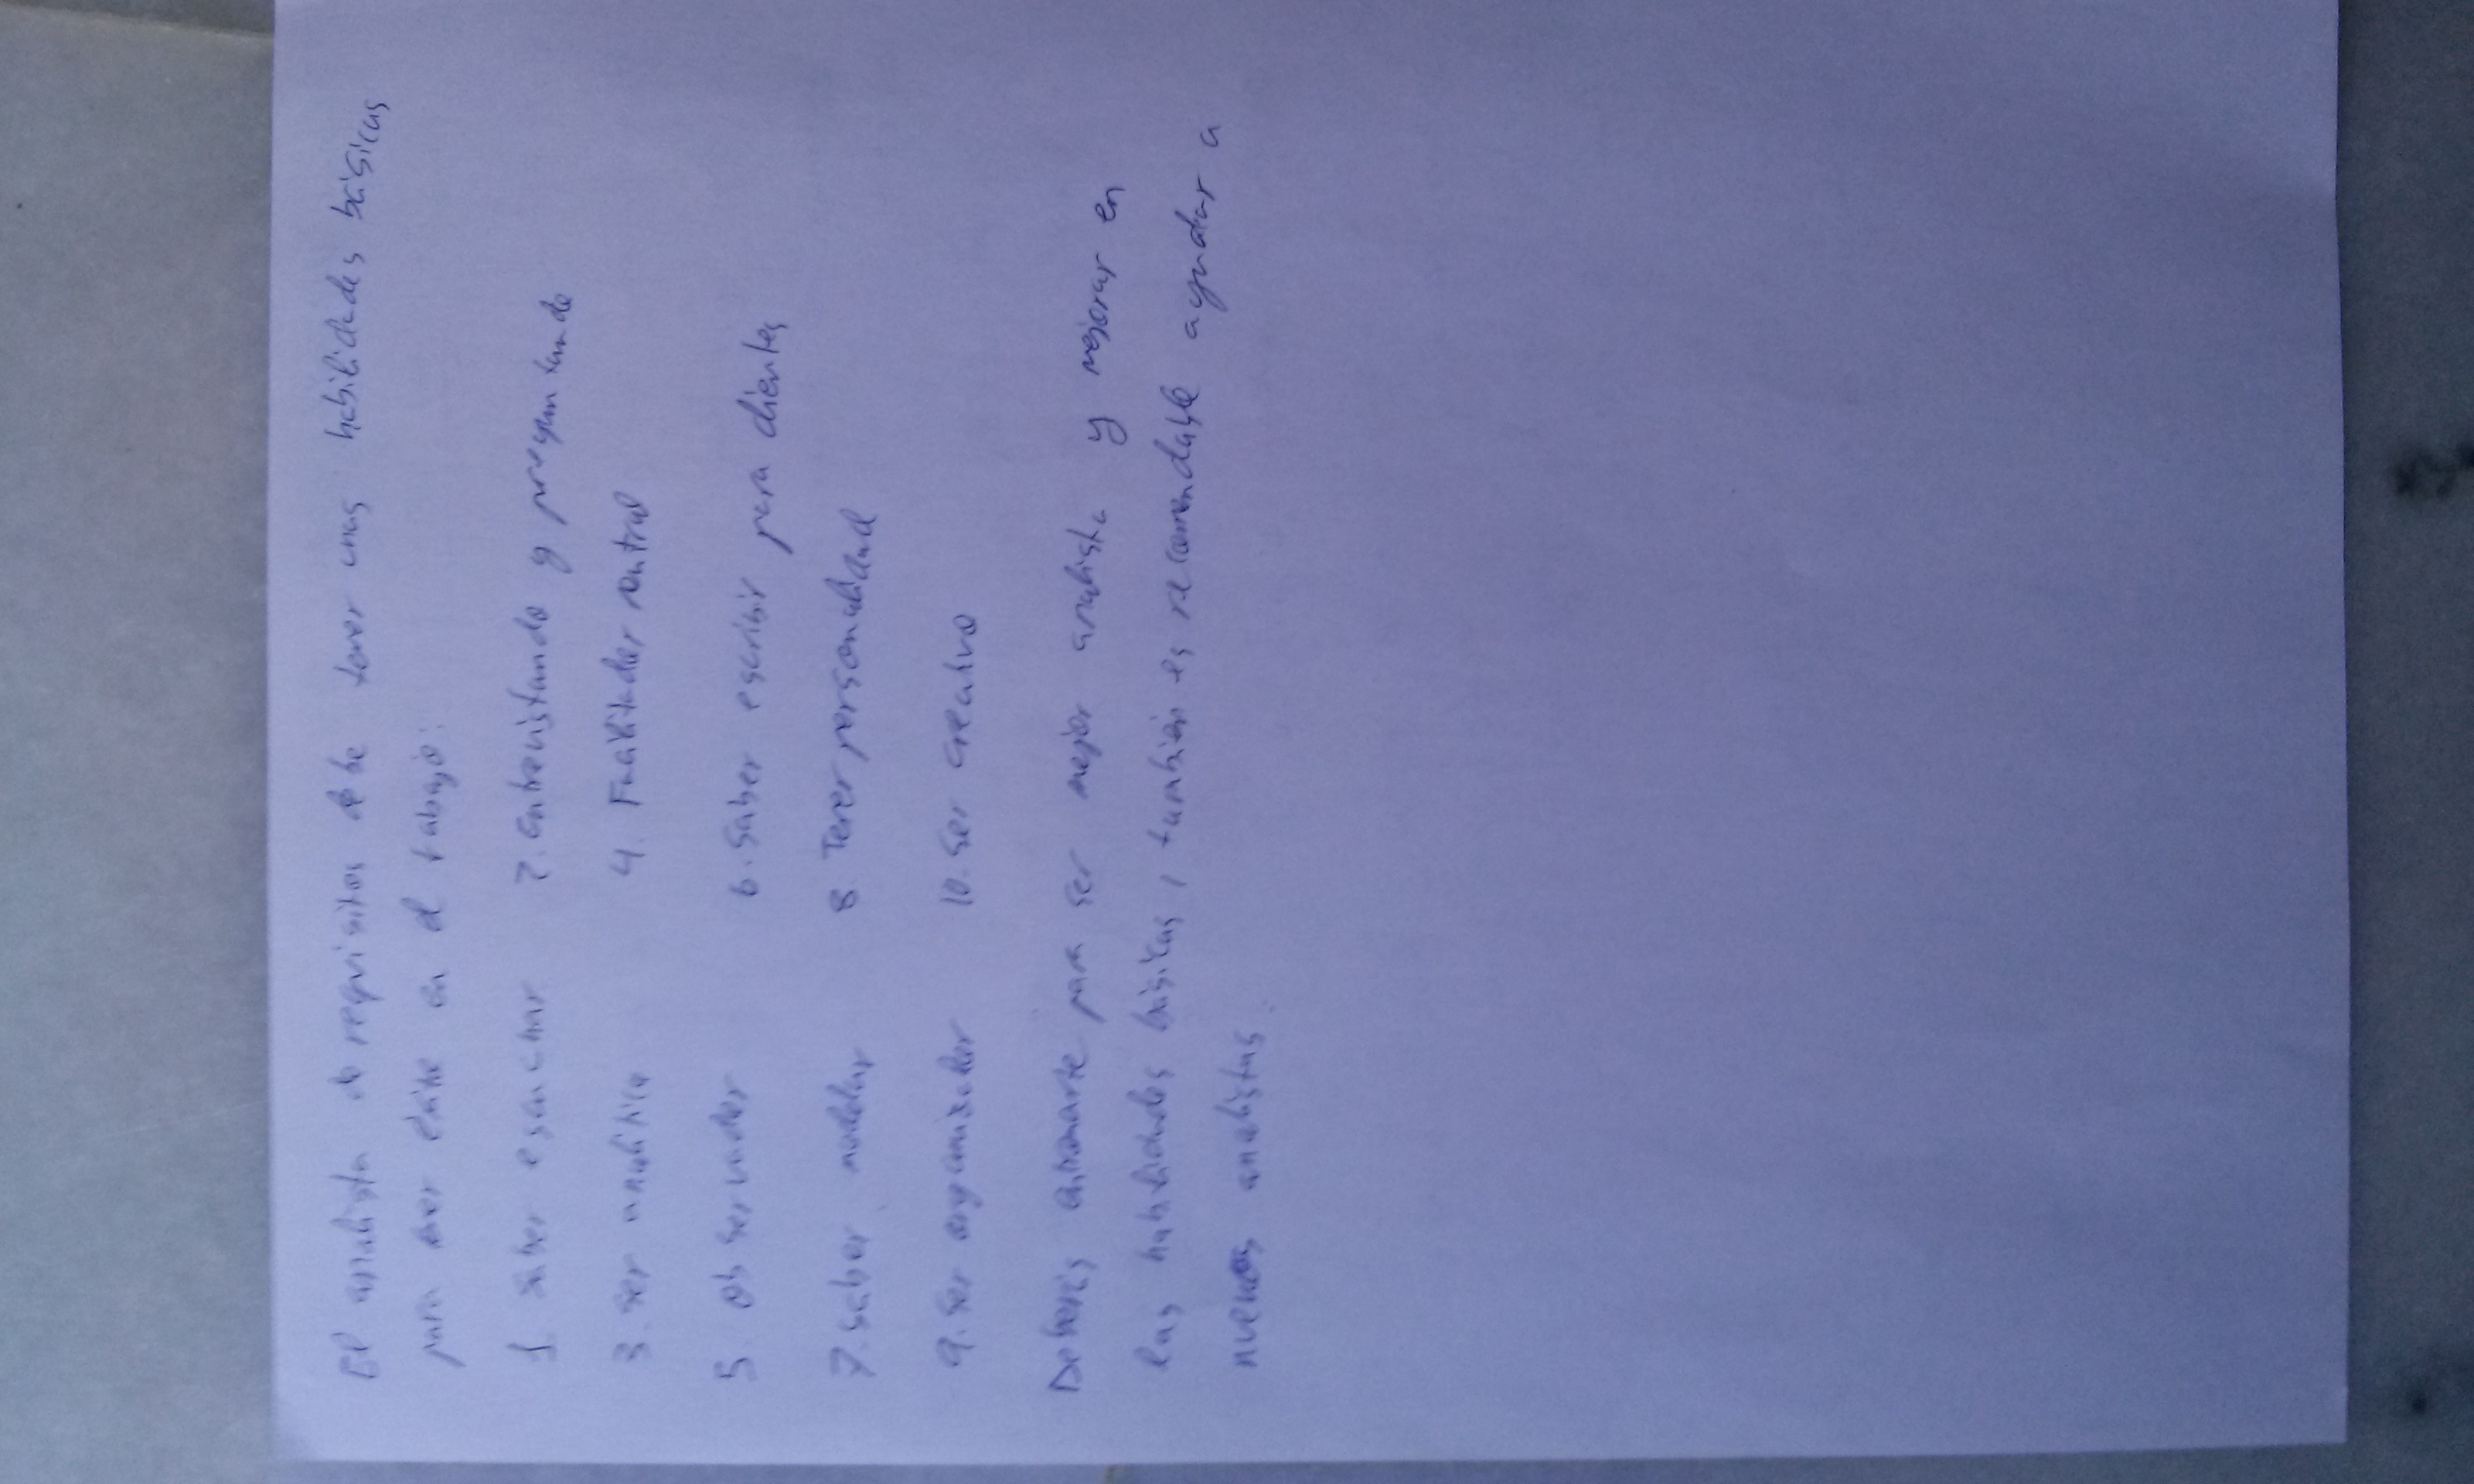 El analista de requisitos debe tener unas habilidades básicas
para tener éxito en el trabajo:
1. Saber escuchar 2. entrevistando y preguntando
3. Ser analítico 4. Facilitador
5. Observador 6. Saber escribir para clientes
7. Saber modelar 8. Tener personalidad
9. Ser organizador 10. Ser creativo
Deberás entrenarte para ser mejor analista y mejorar en
las habilidades básicas, también es recomendable ayudar a
nuevos analistas.